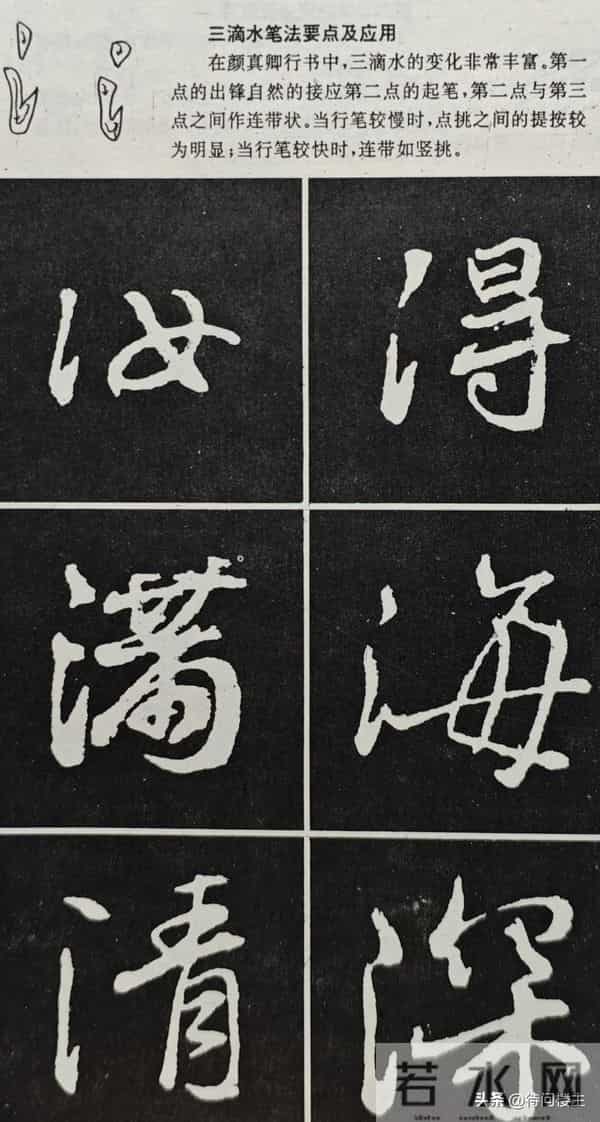 三滴水笔法要点及应用
在颜真卿行书中,三滴水的变化非常丰富。第一
点的出锋自然的接应第二点的起笔,第二点与第三
点之间作连带状。当行笔较慢时,点挑之间的提按较
为明显;当行笔较快时,连带如竖挑。
汝 得
滿 海
清 深
若水网
头条 @待问楼主